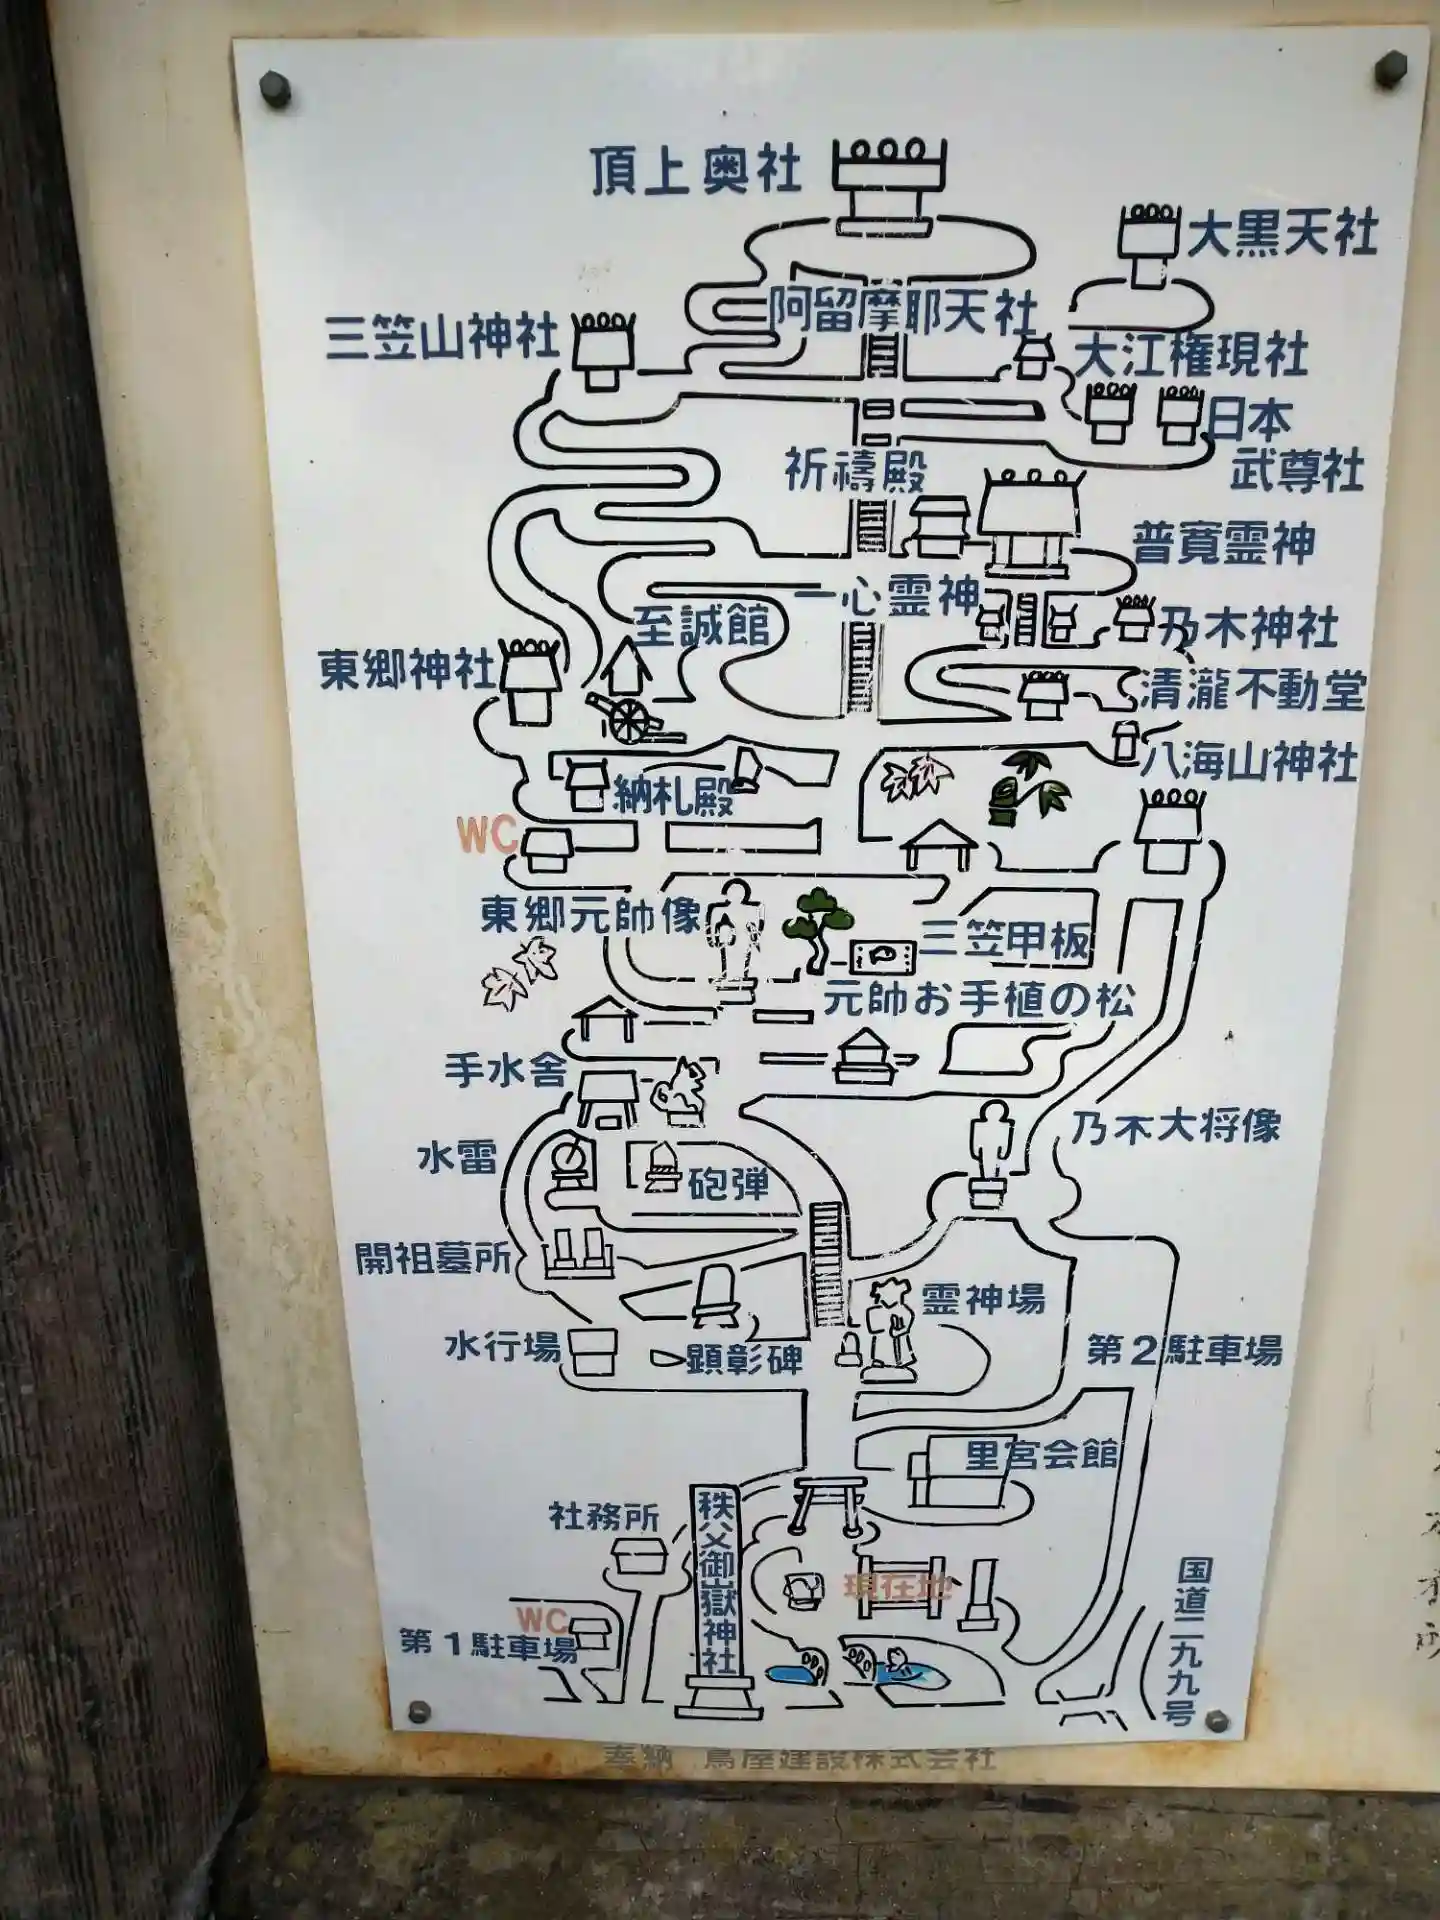 頂上奥社
大黒天社
阿留摩耶天社
三笠山神社
大江権現社
日本
武尊社
祈禱殿
普寛霊神
一心霊神
至誠館
乃木神社
東郷神社
清瀧不動堂
八海山神社
納札殿
WC
東郷元帥像
三笠甲板
元帥お手植の松
手水舎
乃木大将像
水雷
砲弾
開祖墓所
霊神場
水行場
顕彰碑
第2駐車場
里宮会館
社務所
秩父御嶽神社
現在地
WC
第1駐車場
国道二九九号
奉納 鳥屋建設株式会社